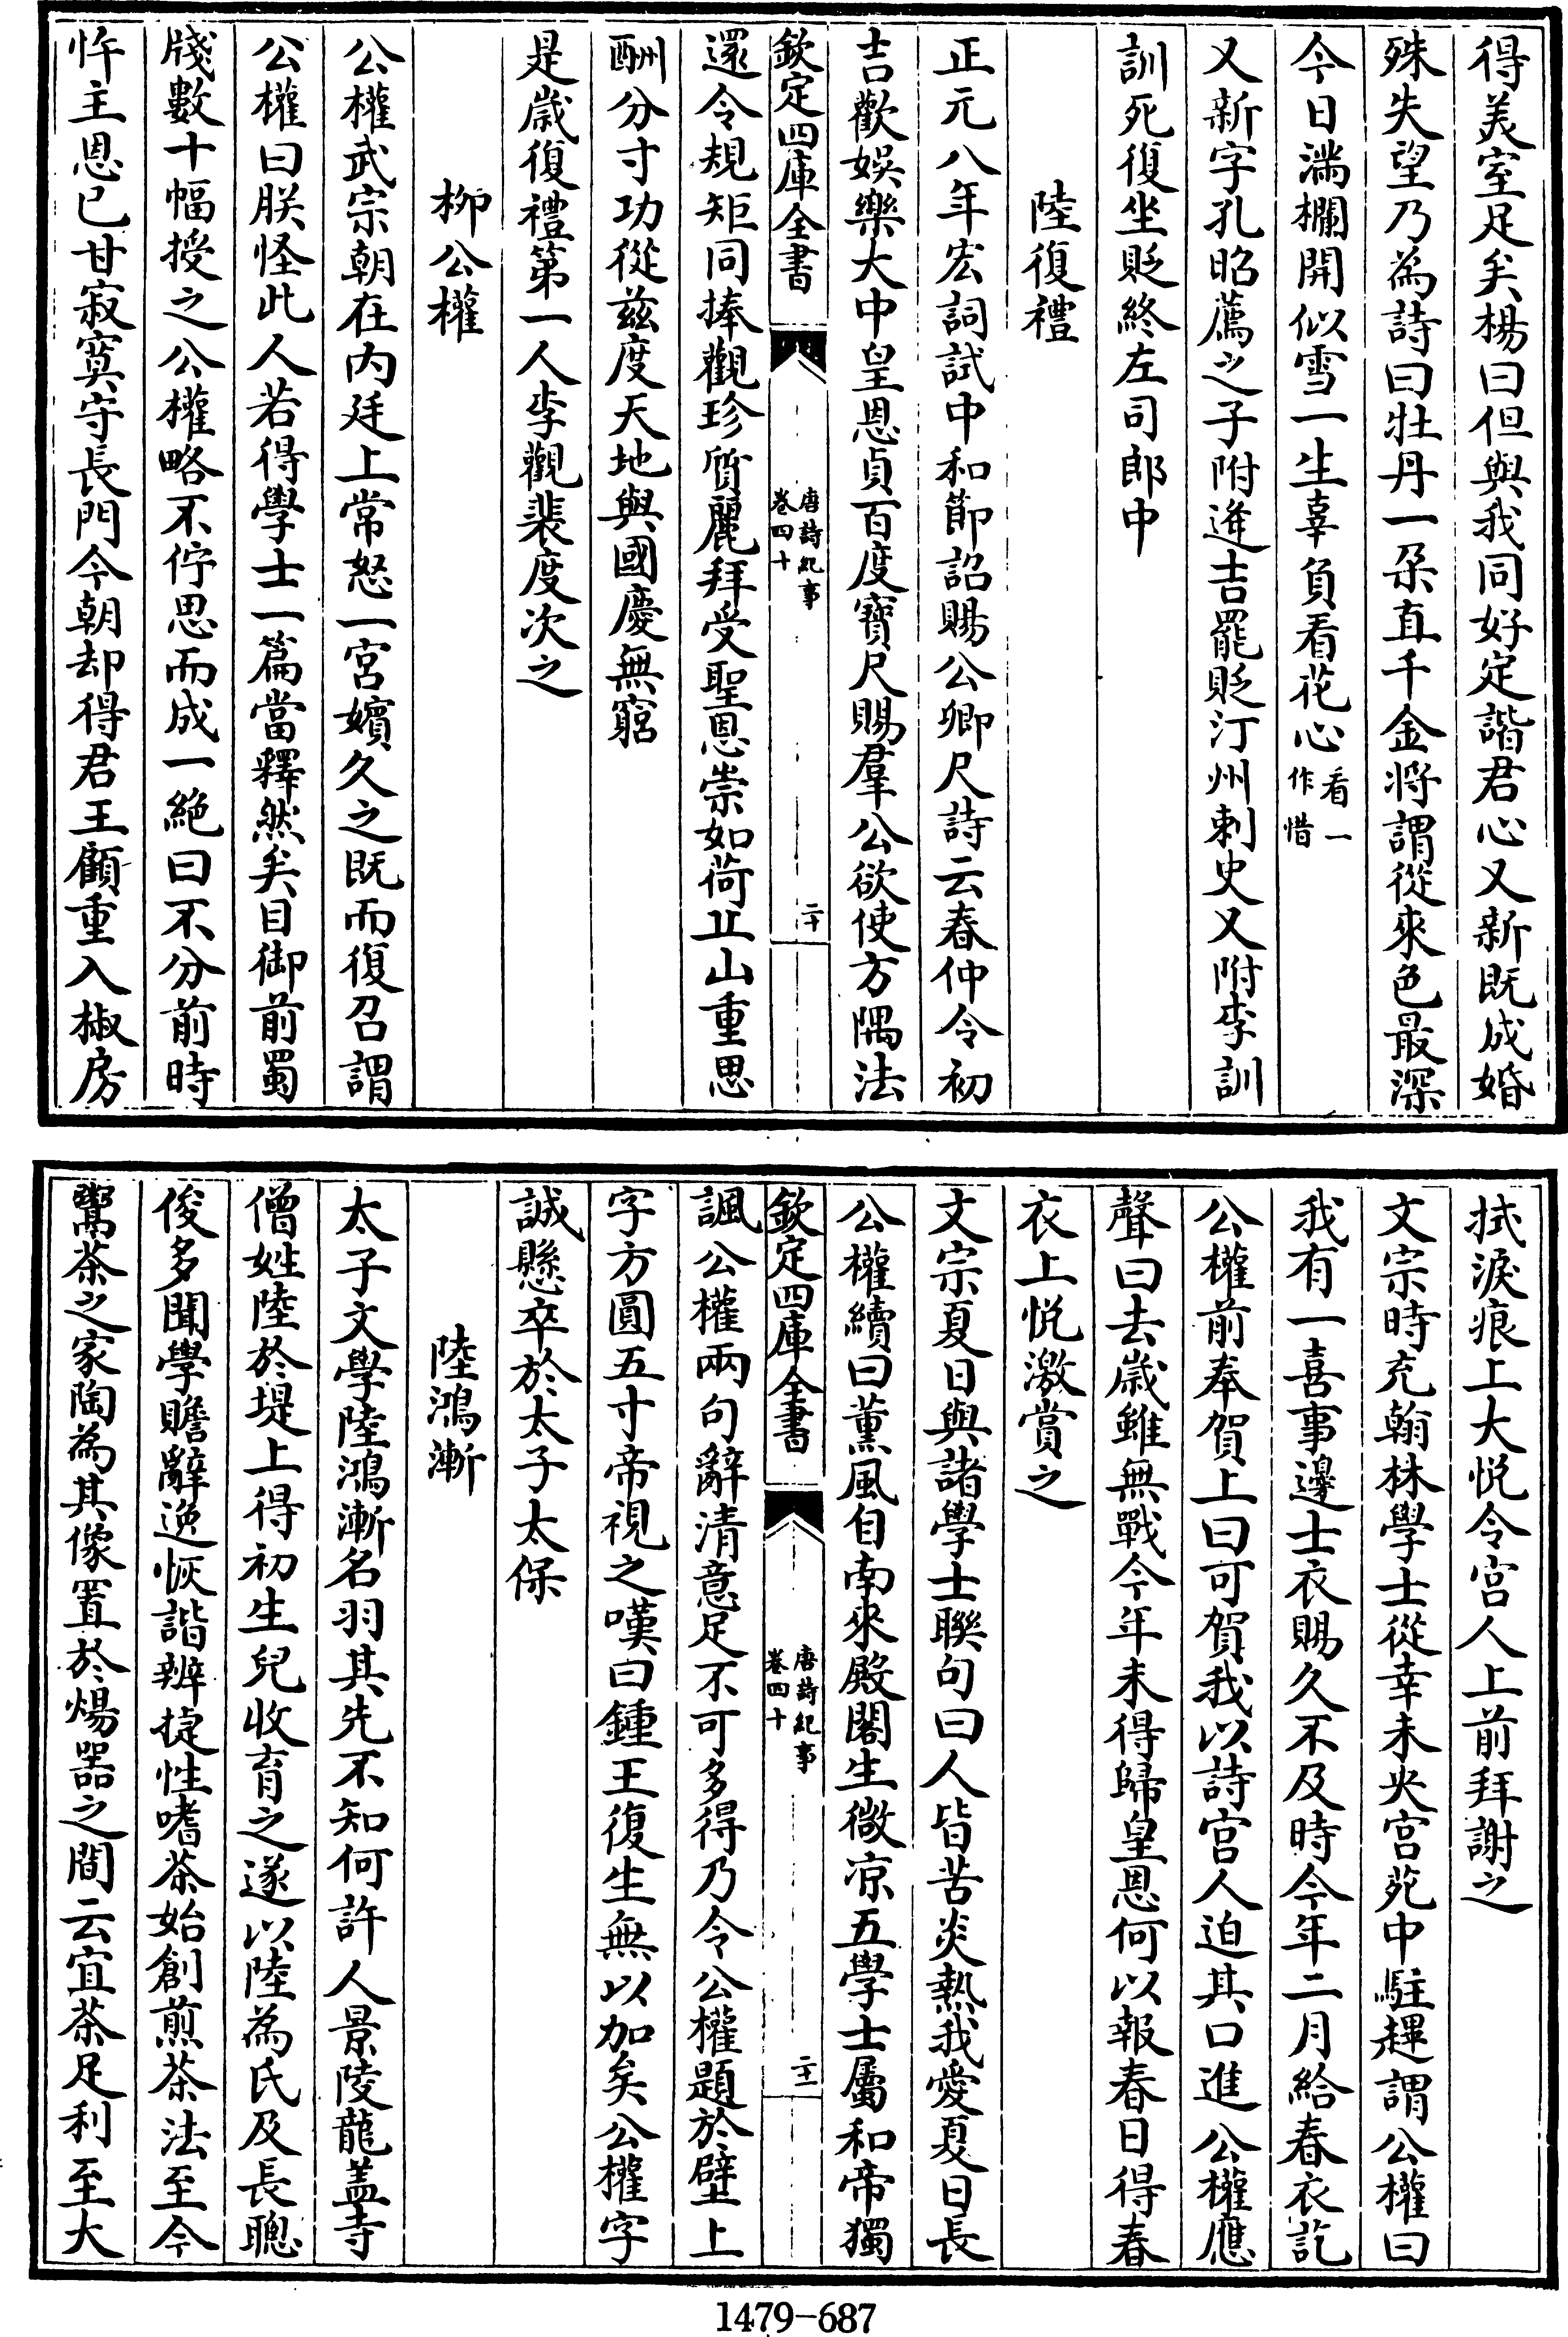 得美室足矣楊曰但與我同好定諧君心又新既成婚
殊失望乃為詩曰牡丹一朶直千金將謂從來色最深
今日滿欄開似雪一生辜負看花心看一作惜
又新字孔昭薦之子附逄吉罷貶汀州刺史又附李訓
訓死復坐貶終左司郎中
陸復禮
正元八年宏詞試中和節詔賜公卿尺詩云春仲令初
吉歡娛樂大中皇恩貞百度寳尺賜羣公欲使方隅法
欽定四庫全書
唐詩紀事
卷四十
二十
還令規矩同捧觀珍質麗拜受聖恩崇如荷丠山重思
酬分寸功從兹度天地與國慶無窮
是嵗復禮第一人李觀裴度次之
栁公權
公權武宗朝在内廷上常怒一宮嬪久之既而復召謂
公權曰朕怪此人若得學士一篇當釋然矣目御前蜀
牋數十幅授之公權略不佇思而成一絶曰不分前時
忤主恩已甘寂寞守長門今朝却得君王顧重入椒房
拭淚痕上大悦令宫人上前拜謝之
文宗時充翰林學士從幸未央宫苑中駐趯謂公權曰
我有一喜事邊士衣賜久不及時今年二月給春衣訖
公權前奉賀上曰可賀我以詩宫人迫其口進公權應
聲曰去嵗雖無戰今年未得歸皇恩何以報春日得春
衣上悦激賞之
文宗夏日與諸學士聯句曰人皆苦炎熱我愛夏日長
公權續曰薰風自南來殿閣生微凉五學士屬和帝獨
欽定四庫全書
唐詩紀事
卷四十
二十一
諷公權兩句辭清意足不可多得乃令公權題於壁上
字方圓五寸帝視之嘆曰鍾王復生無以加矣公權字
誠懸卒於太子太保
陸鴻漸
太子文學陸鴻漸名羽其先不知何許人景陵龍盖寺
僧姓陸於堤上得初生兒收育之遂以陸為氏及長聰
俊多聞學贍辭逸恢諧辨捷性嗜茶始創煎茶法至今
鬻茶之家陶為其像置於煬器之間云宜茶足利至大
1479-687